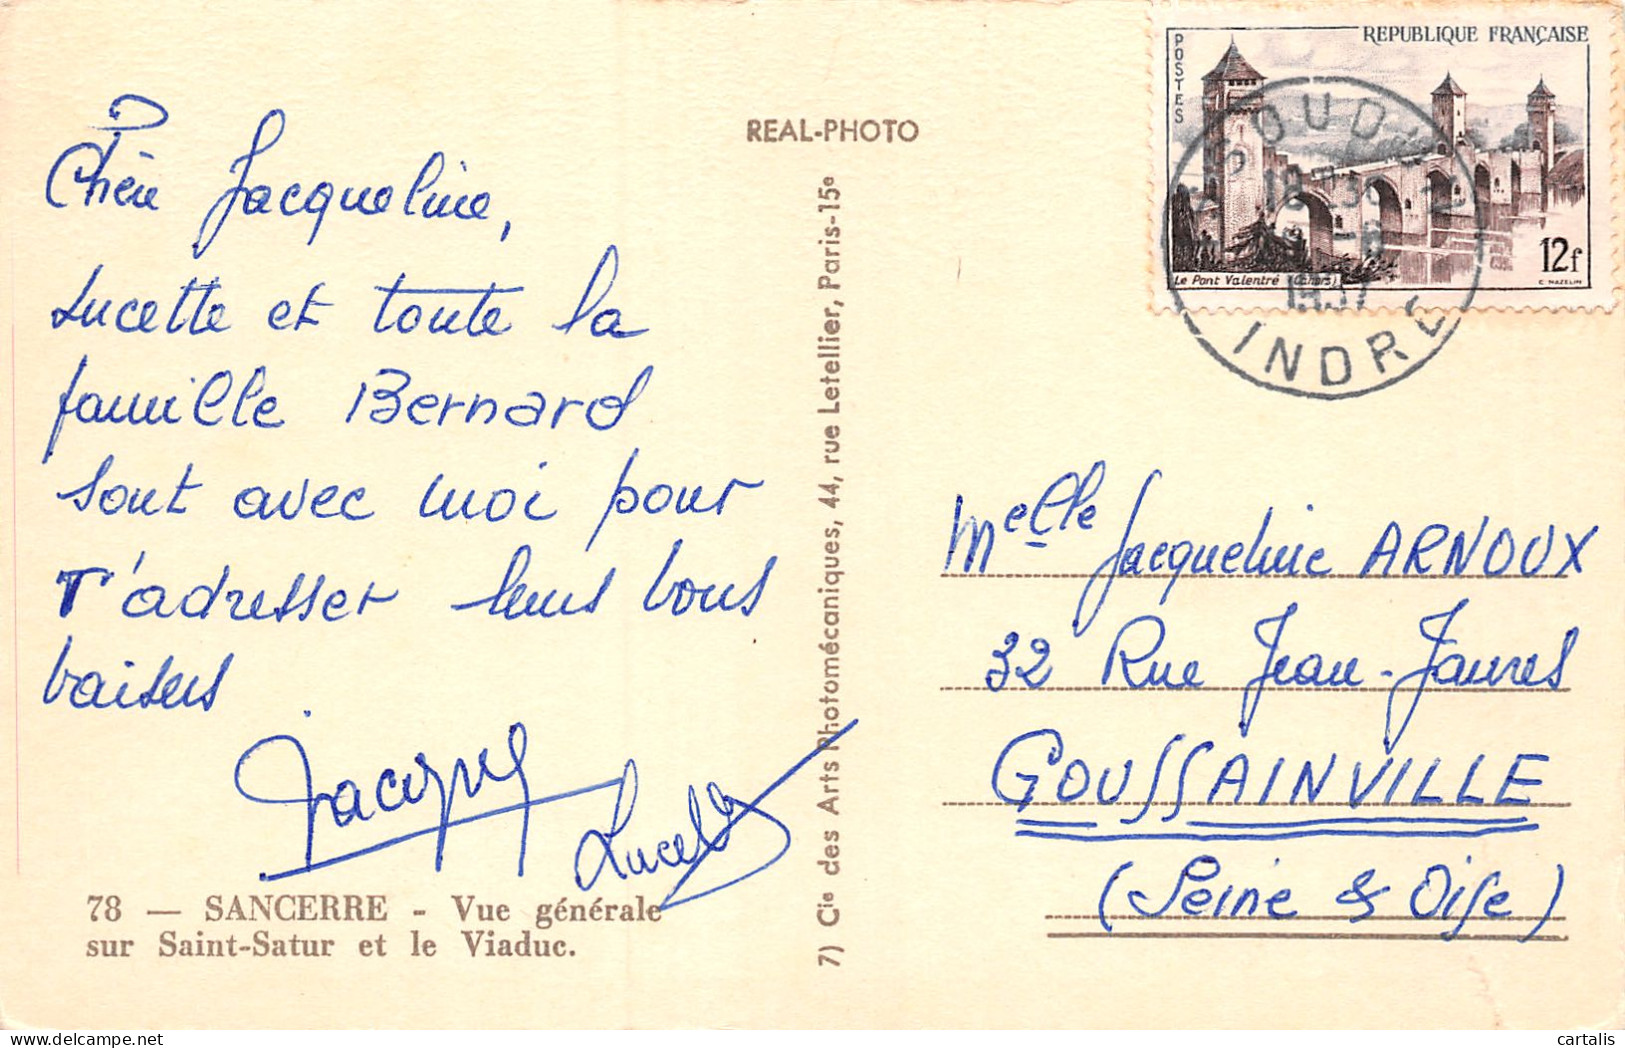 Chère Jacqueline,
Lucette et toute la
famille Bernard
sont avec moi pour
T'adresser leurs bons
baisers
Jacques
Lucette
78 — SANCERRE - Vue générale
sur Saint-Satur et le Viaduc.
REAL-PHOTO
7) Cie des Arts Photomécaniques, 44, rue Letellier, Paris-15e
POSTES
REPUBLIQUE FRANÇAISE
Le Pont Valentré (Cahors)
12f
C. MAZELIN
ISSOUDUN
18H30
1957
INDRE
Melle Jacqueline ARNOUX
32 Rue Jean-Jaurès
GOUSSAINVILLE
(Seine & Oise)
cartalis